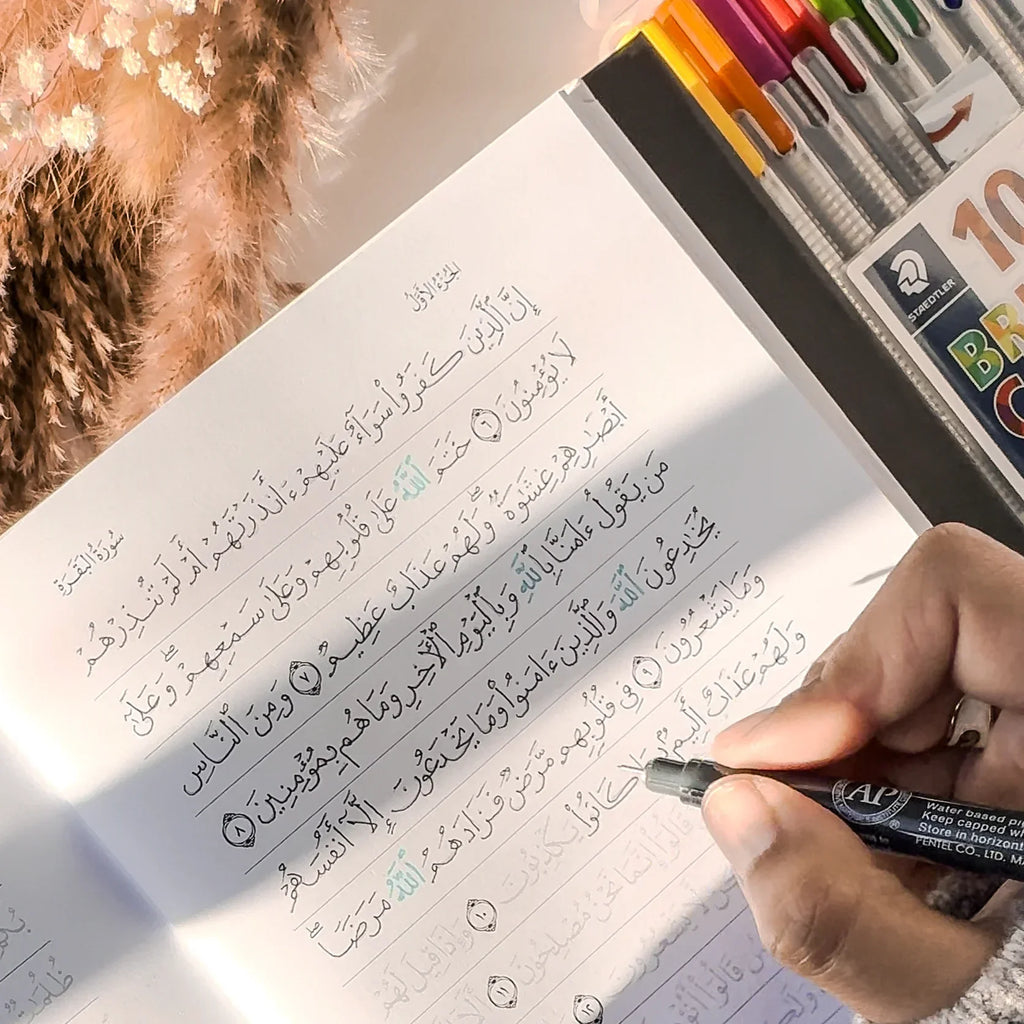 الجُزْءُ الأَوَّلُ
سُورَةُ البَقَرَةِ
إِنَّ ٱلَّذِينَ كَفَرُوا۟ سَوَآءٌ عَلَيْهِمْ ءَأَنذَرْتَهُمْ أَمْ لَمْ تُنذِرْهُمْ
لَا يُؤْمِنُونَ ٦ خَتَمَ ٱللَّهُ عَلَىٰ قُلُوبِهِمْ وَعَلَىٰ سَمْعِهِمْ ۖ وَعَلَىٰٓ
أَبْصَٰرِهِمْ غِشَٰوَةٌ ۖ وَلَهُمْ عَذَابٌ عَظِيمٌ ٧ وَمِنَ ٱلنَّاسِ
مَن يَقُولُ ءَامَنَّا بِٱللَّهِ وَبِٱلْيَوْمِ ٱلْءَاخِرِ وَمَا هُم بِمُؤْمِنِينَ ٨
يُخَٰدِعُونَ ٱللَّهَ وَٱلَّذِينَ ءَامَنُوا۟ وَمَا يَخْدَعُونَ إِلَّآ أَنفُسَهُمْ
وَمَا يَشْعُرُونَ ٩ فِى قُلُوبِهِم مَّرَضٌ فَزَادَهُمُ ٱللَّهُ مَرَضًا ۖ
وَلَهُمْ عَذَابٌ أَلِيمٌۢ بِمَا كَانُوا۟ يَكْذِبُونَ ١٠ وَإِذَا قِيلَ لَهُمْ
قَالُوٓا۟ إِنَّمَا نَحْنُ مُصْلِحُونَ ١١ أَلَآ
لَّا يَشْعُرُونَ ١٢
قَالُوٓا۟ أَنُؤْمِنُ
STAEDTLER
10
BR
AP
Water based
Keep capped
Store in horizont
PENTEL CO., LTD.